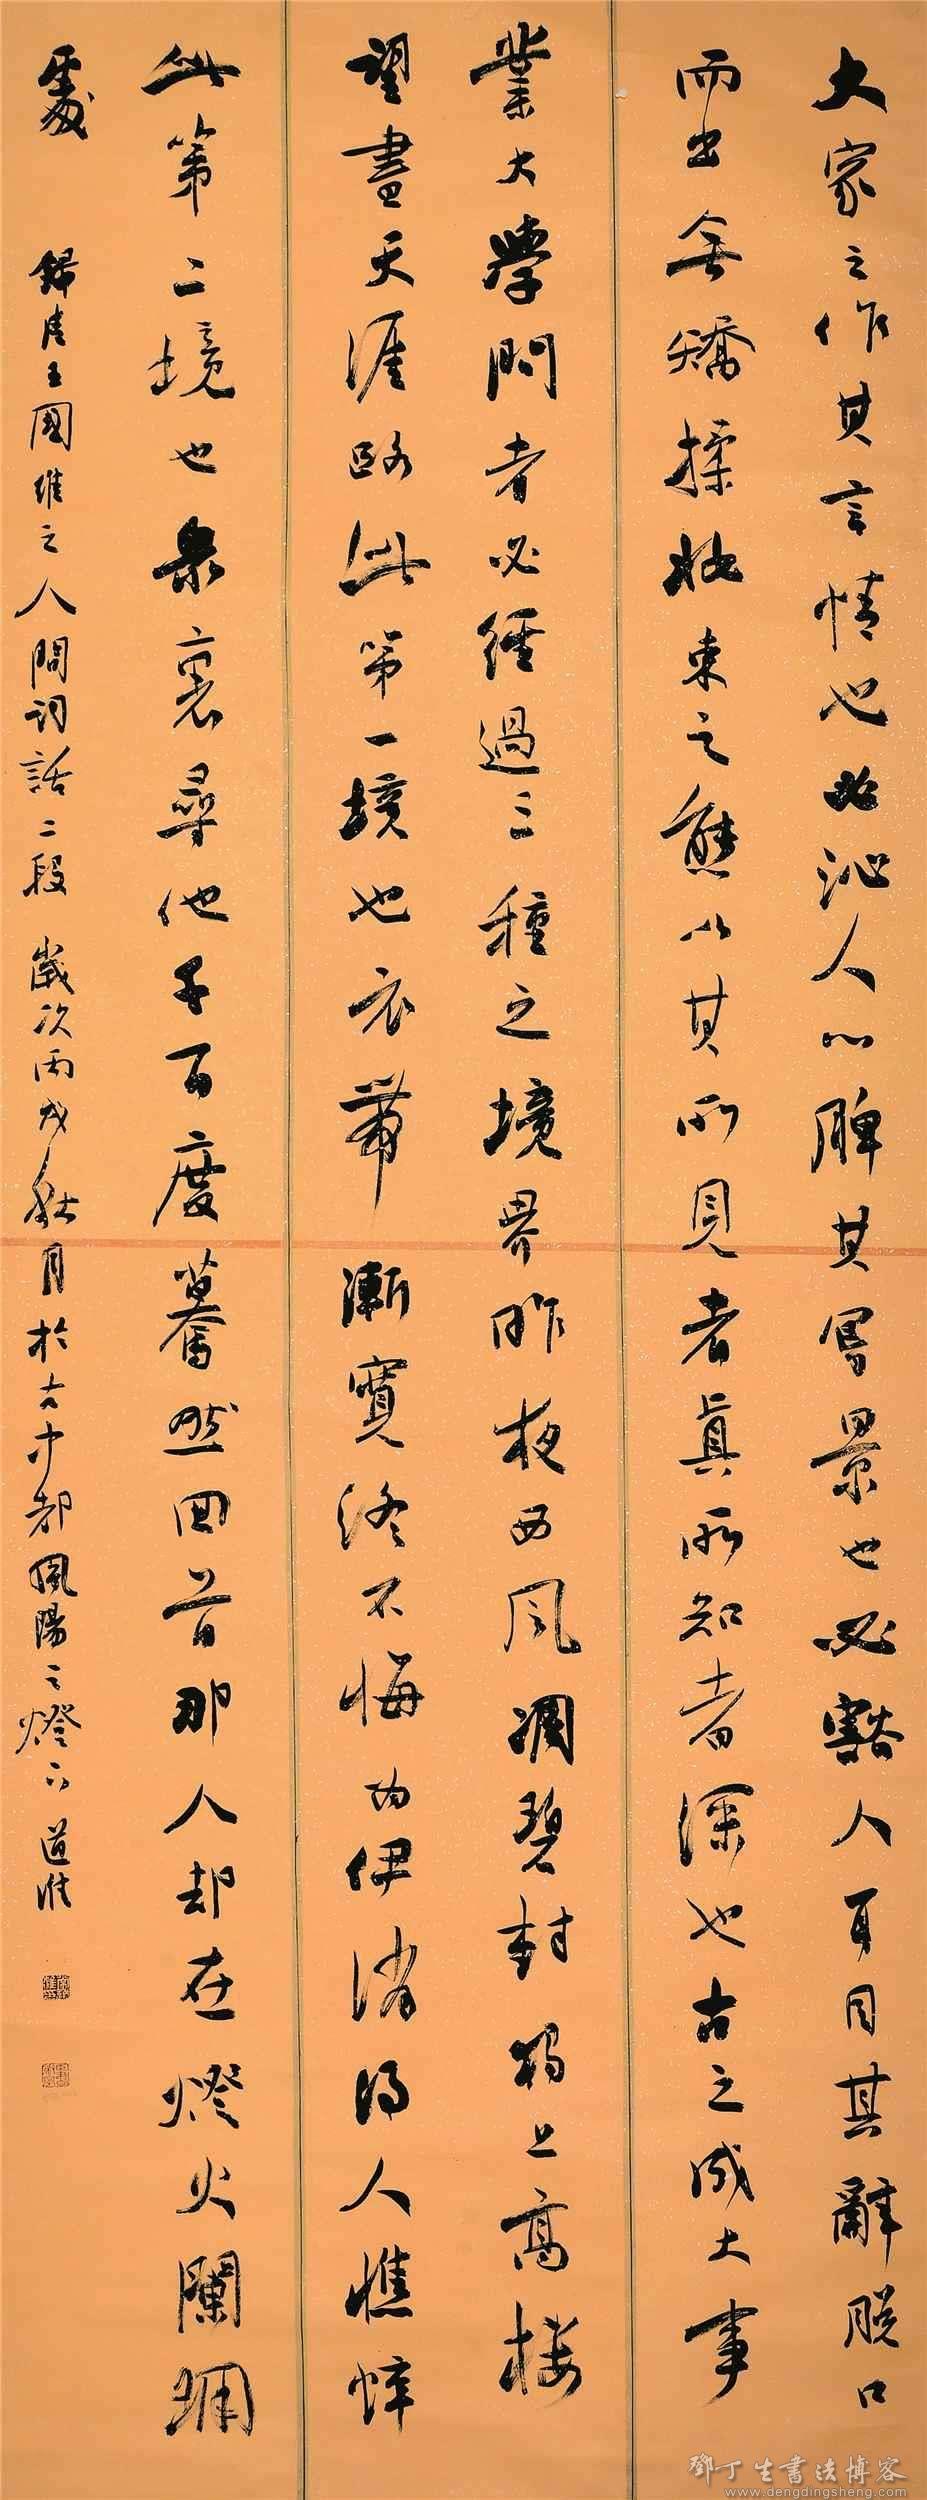 大家之作其言情也必沁人心脾其寫景也必豁人耳目其辭脫口
而出無矯揉妝束之態以其所見者真所知者深也古之成大事
業大學問者必經過三種之境界昨夜西風凋碧樹獨上高樓
望盡天涯路此第一境也衣帶漸寬終不悔為伊消得人憔悴
此第二境也衆裏尋他千百度驀然回首那人却在燈火闌珊
處
錄清王國維之人間詞話二段 歲次丙戌秋月於古中都鳳陽之燈下 道淮
鄧丁生書法博客
www.dengdingsheng.com